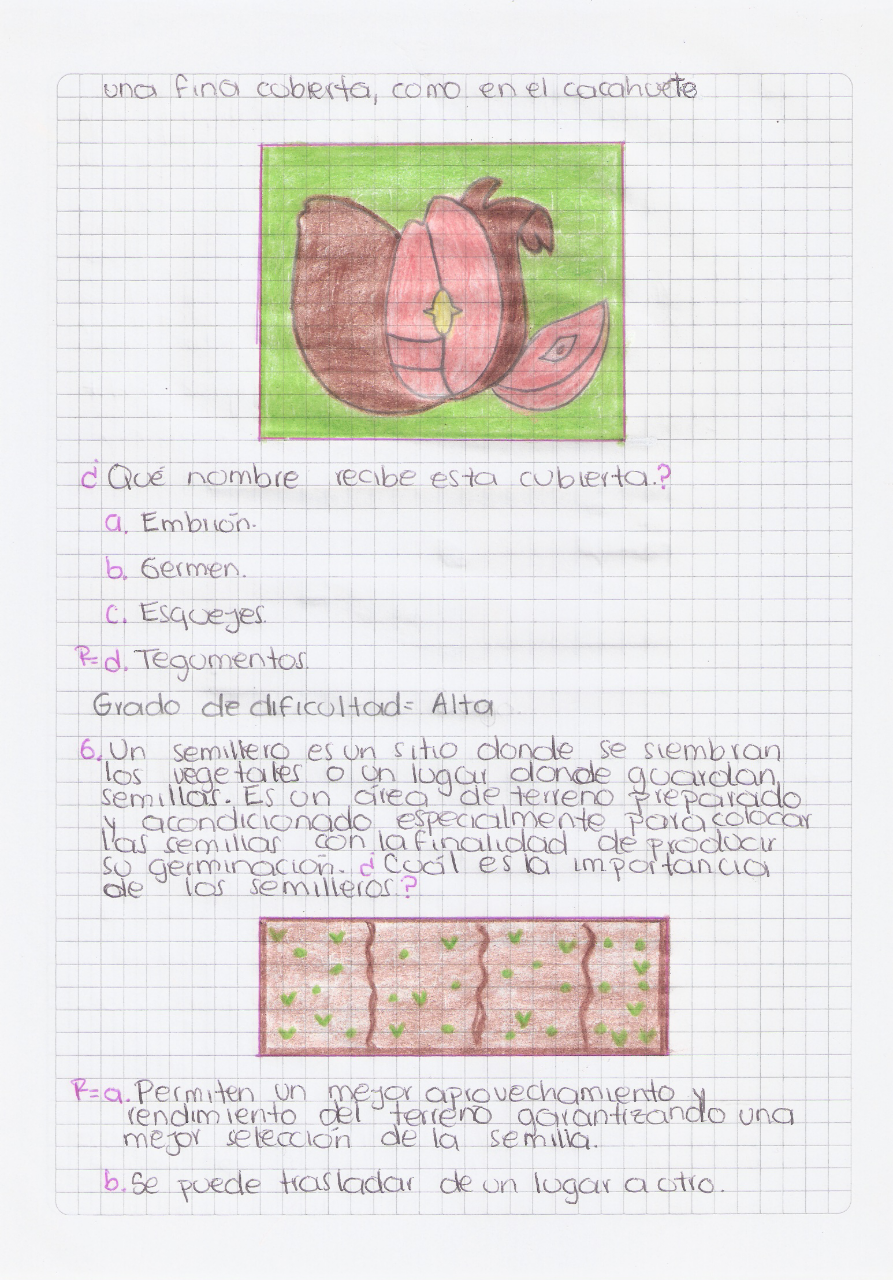 una fina cubierta, como en el cacahuete
¿Qué nombre recibe esta cubierta.?
a. Embrión.
b. Germen.
c. Esquejes.
R= d. Tegumentos.
Grado de dificultad= Alta
6. Un semillero es un sitio donde se siembran
los vegetales o un lugar donde guardan
semillas. Es un área de terreno preparado
y acondicionado especialmente para colocar
las semillas con la finalidad de producir
su germinación. ¿Cuál es la importancia
de los semilleros?
R= a. Permiten un mejor aprovechamiento y
rendimiento del terreno garantizando una
mejor selección de la semilla.
b. Se puede trasladar de un lugar a otro.